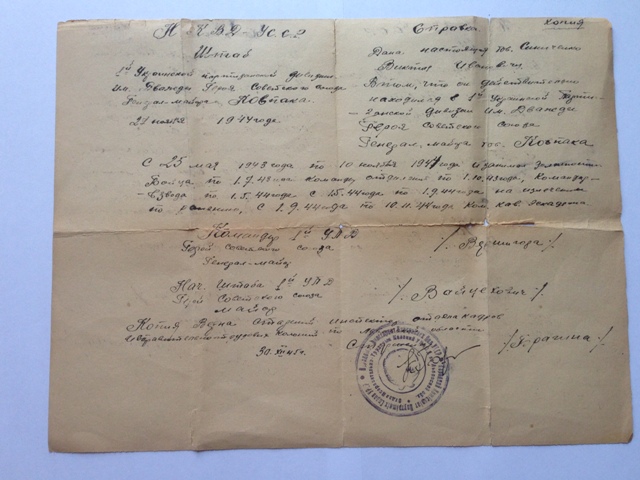 Копия
Н К В Д - У.С.С.Р
Штаб
1й Украинской партизанской дивизии
им. Дважды Героя Советского союза
Генерал-майора Ковпака.
21 ноября 1944 года
Справка
Дана настоящая тов. Симиченко
Виктор Иванович
В том, что он действительно
находился в 1й Украинской Парти-
занской дивизии им. Дважды
Героя Советского союза
Генерал-майора тов. Ковпака
С 25 мая 1943 года по 10 ноября 1944 года и занимал должность
Бойца по 1.7.43 Командир отделения по 1.10.43 года, Командир
Взвода по 1.5.44 года с 1.5.44 года по 1.9.44 года на излечении
по ранению, с 1.9.44 года по 10.11.44 года Ком. кав. эскадрона.
Командир 1й УПД
Герой Советского союза
Генерал-майор
/. Вершигора /
Нач. Штаба 1й УПД
Герой Советского союза
майор
/. Войцехович /.
Копия Верна Старший инспектор отдела кадров
Исправительно трудовых Колоний по области
30.XII 45 г.